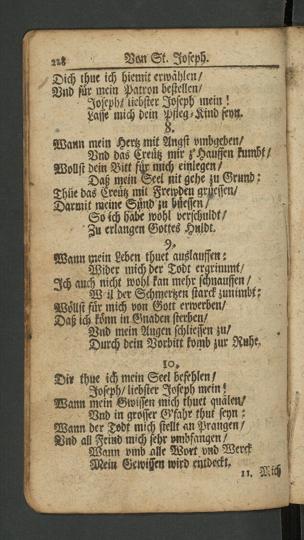 228 Von St. Joseph.
Dich thue ich hiemit erwählen/
Vnd für mein Patron bestellen/
Joseph/ liebster Joseph mein!
Lasse mich dein Pfleg-Kind seyn.
8.
Wann mein Hertz mit Angst vmbgeben/
Vnd das Creütz mir z'Hauffen kumbt/
Wollst dein Bitt für mich einlegen/
Daß mein Seel nit gehe zu Grund:
Thüe das Creütz mit Frewden grüessen/
Darmit meine Sünd zu büessen/
So ich habe wohl verschuldt/
Zu erlangen Gottes Huldt.
9.
Wann mein Leben thuet auslauffen:
Wider mich der Todt ergrimmt/
Ich auch nicht wohl kan mehr schnauffen/
Weil der Schmertzen starck zunimbt:
Wöllst für mich von Gott erwerben/
Daß ich könn in Gnaden sterben/
Vnd mein Augen schliessen zu/
Durch dein Vorbitt komb zur Ruhe.
10.
Dir thue ich mein Seel befehlen/
Joseph/ liebster Joseph mein!
Wann mein Gwissen mich thuet quälen/
Vnd in grosser G'fahr thut seyn:
Wann der Todt mich stellt an Prangen/
Vnd all Feind mich sehr vmbfangen/
Wann vmb alle Wort und Werck
Mein Gewissen wird entdeckt.
11. Mich